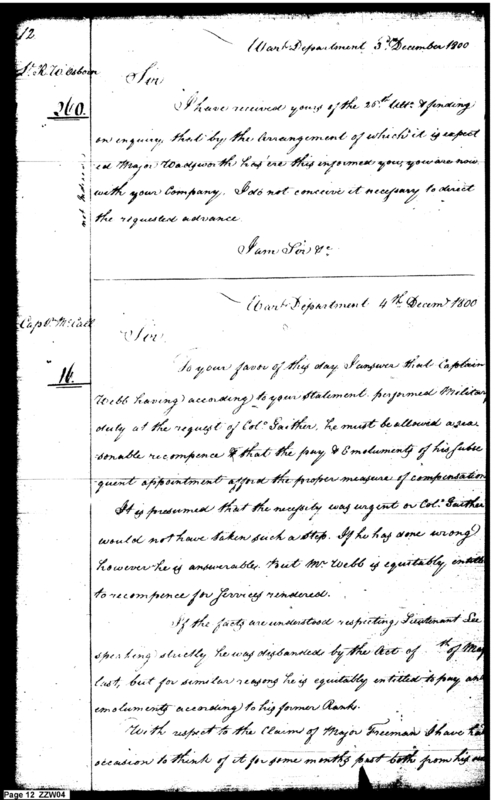 12
War Department 3rd December 1800
Lt. R W Osborn
Sir
260.
I have received yours of the 26th Ulto. & finding
on enquiry that by the Arrangement of which it is expect
ed Major Wadsworth has 'ere this informed you, you are now
with your Company. I do not conceive it necessary to direct
the requested advance
I am Sir &c
War Department 4th Decemr 1800
Capt. McCall
Sir
16.
To your favor of this day I answer that Captain
Webb having according to your statement performed Military
duty at the request of Colo. Gaither, he must be allowed a rea
sonable recompence & that the pay & Emoluments of his subse
quent appointment afford the proper measure of compensation
It is presumed that the necessity was urgent or Colo. Gaither
would not have taken such a step. If he has done wrong
however he is answerable. But Mr. Webb is equitably entitled
to recompence for Services rendered.
If the facts are understood respecting Lieutenant Lee
speaking strictly he was disbanded by the Act of th of May
last, but for similar reasons he is equitably entitled to pay and
emoluments according to his former Rank.
With respect to the Claim of Major Freeman I have had
occasion to think of it for some months past both from his own
Page 12 ZZW04